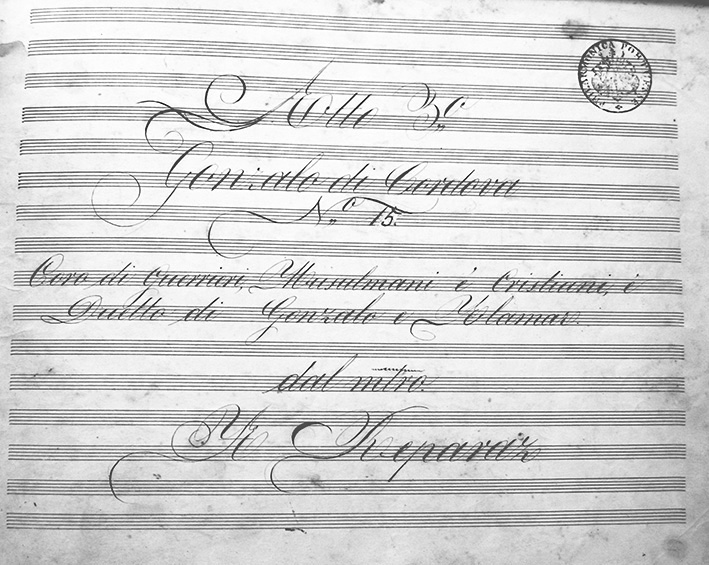 PHILARMONICA PORTUENSE
Atto 3.º
Gonzalo di Cordova
N.º 15.
Coro di Guerrieri, Musulmani é Cristiani, é
Duetto di Gonzalo e Alamar.
dal mtro.
A Reparaz